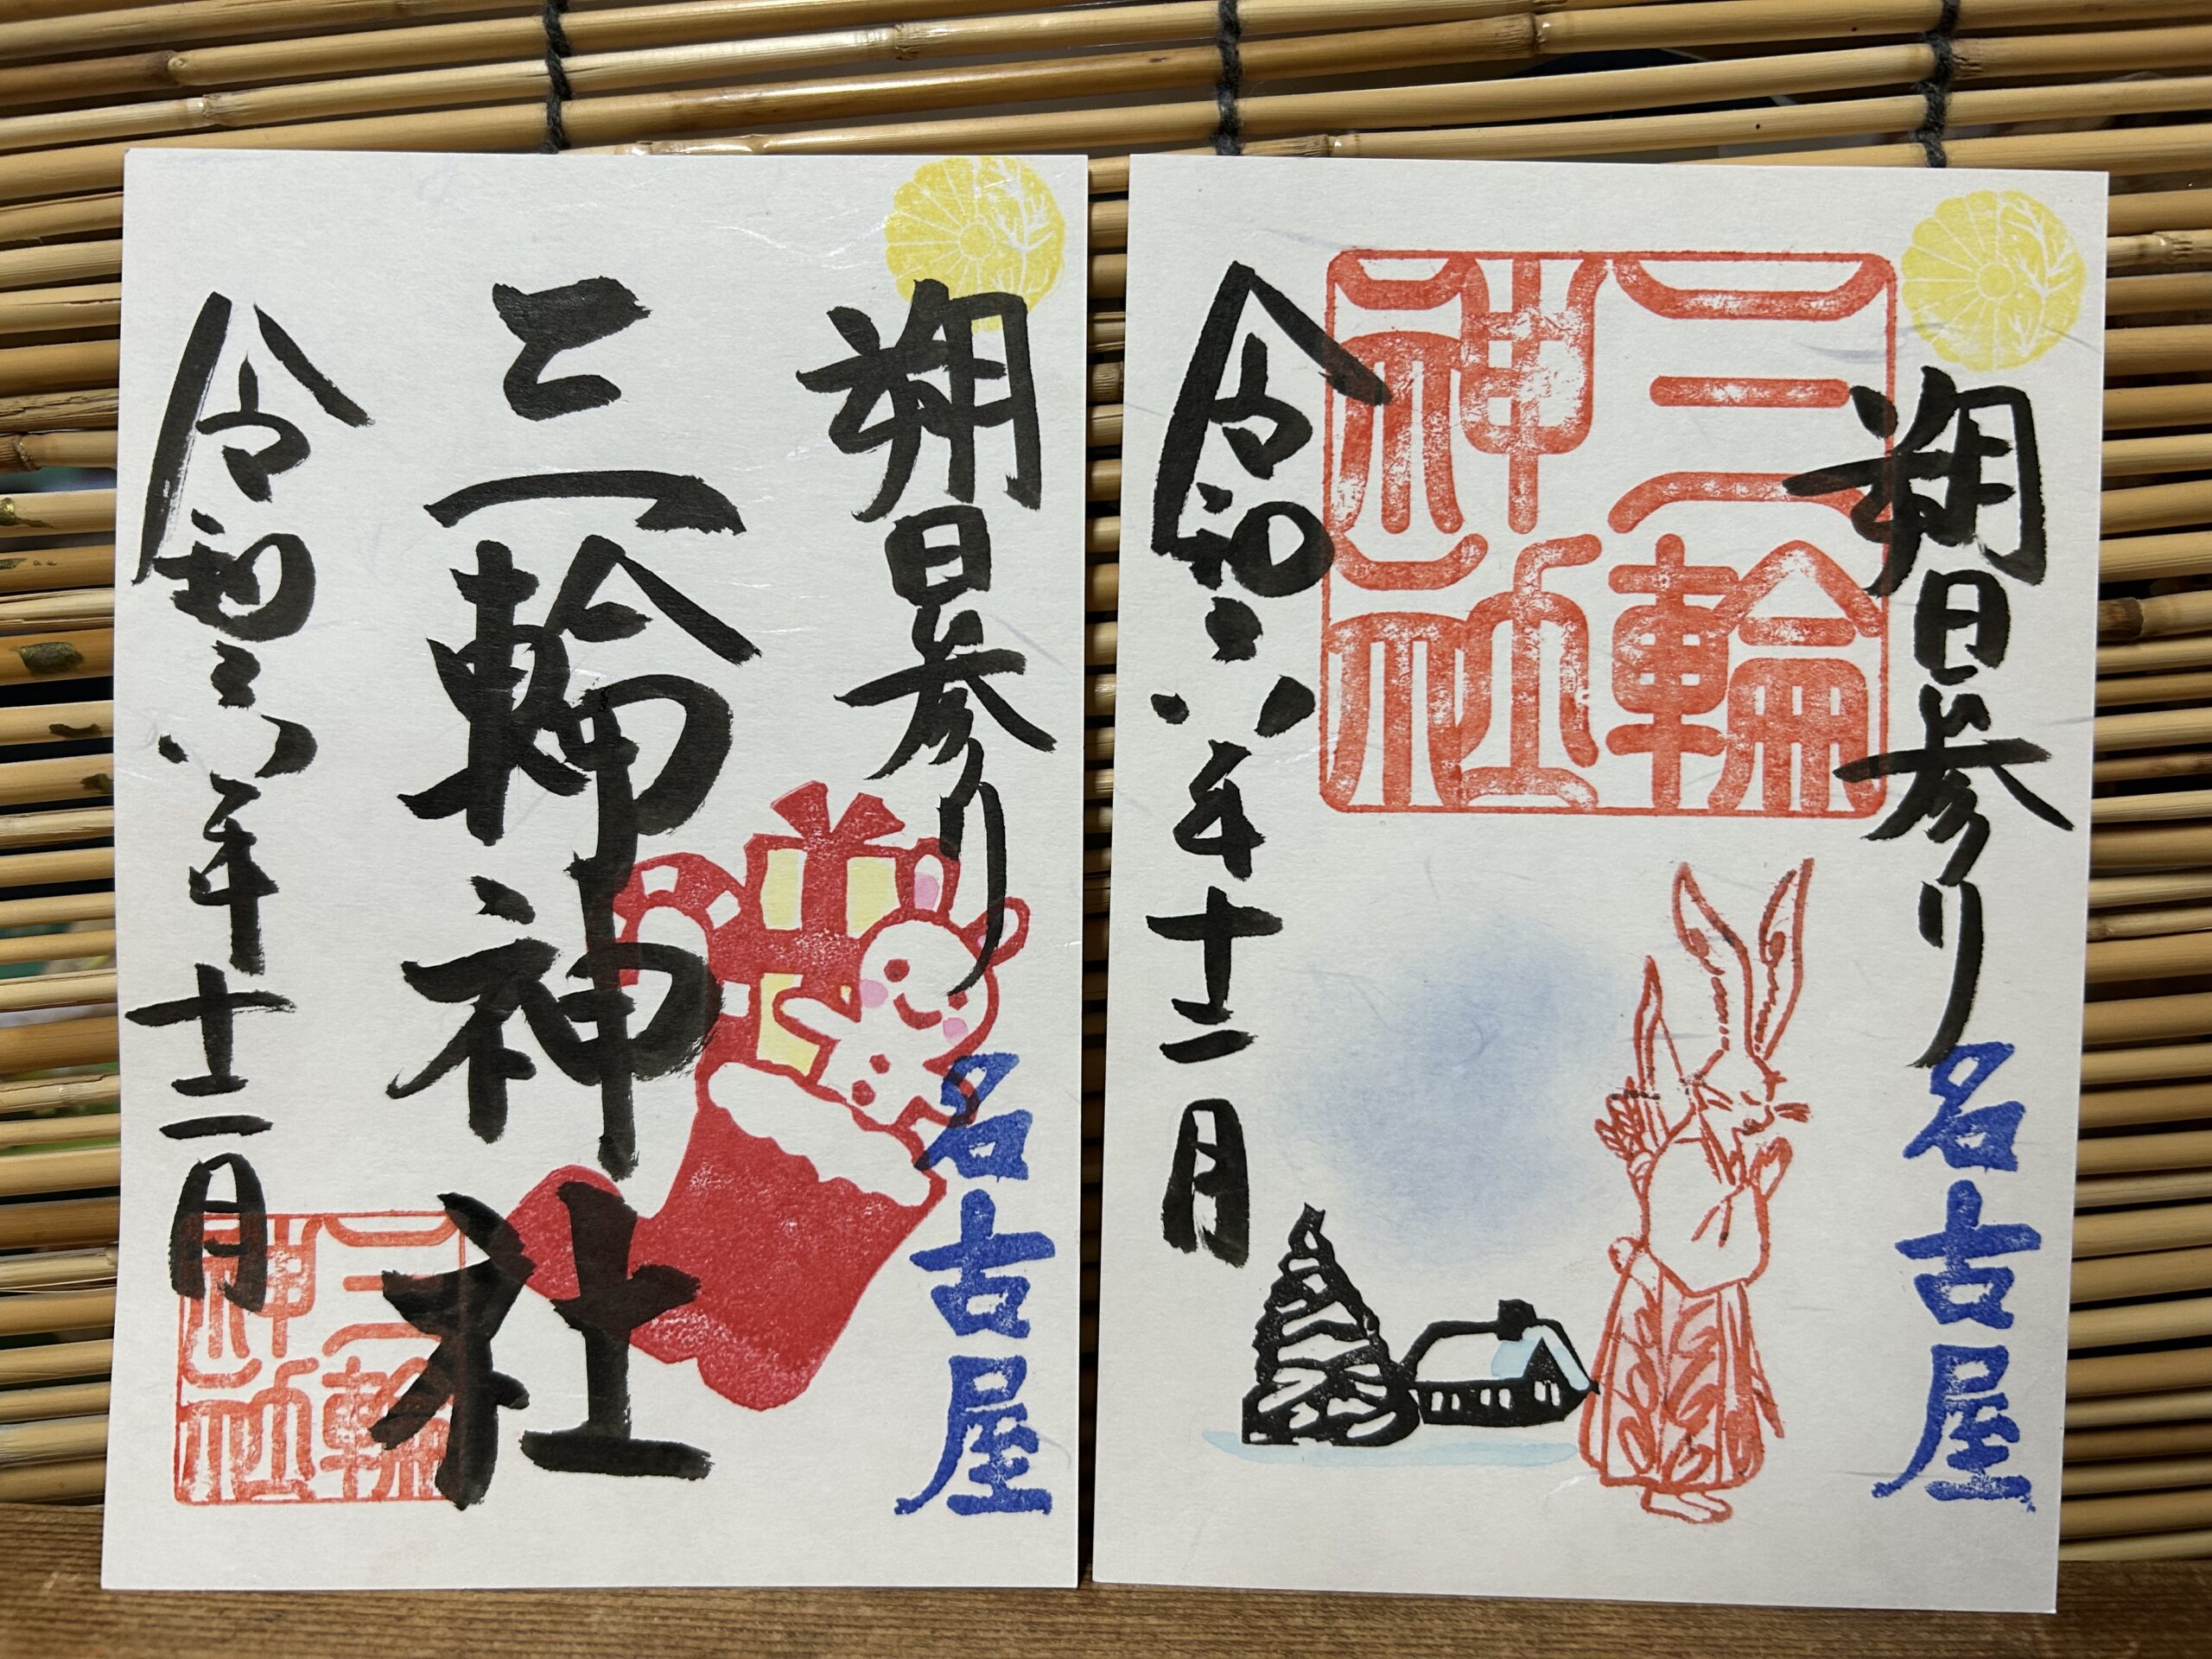 朔日参り
名古屋
三輪神社
令和六年十二月
三輪神社
朔日参り
名古屋
三輪神社
令和六年十二月